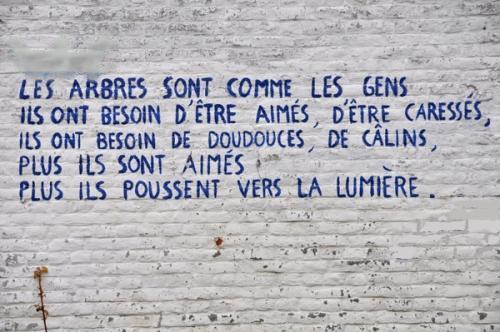 LES ARBRES SONT COMME LES GENS
ILS ONT BESOIN D'ÊTRE AIMÉS, D'ÊTRE CARESSÉS,
ILS ONT BESOIN DE DOUDOUCES, DE CÂLINS,
PLUS ILS SONT AIMÉS
PLUS ILS POUSSENT VERS LA LUMIÈRE.